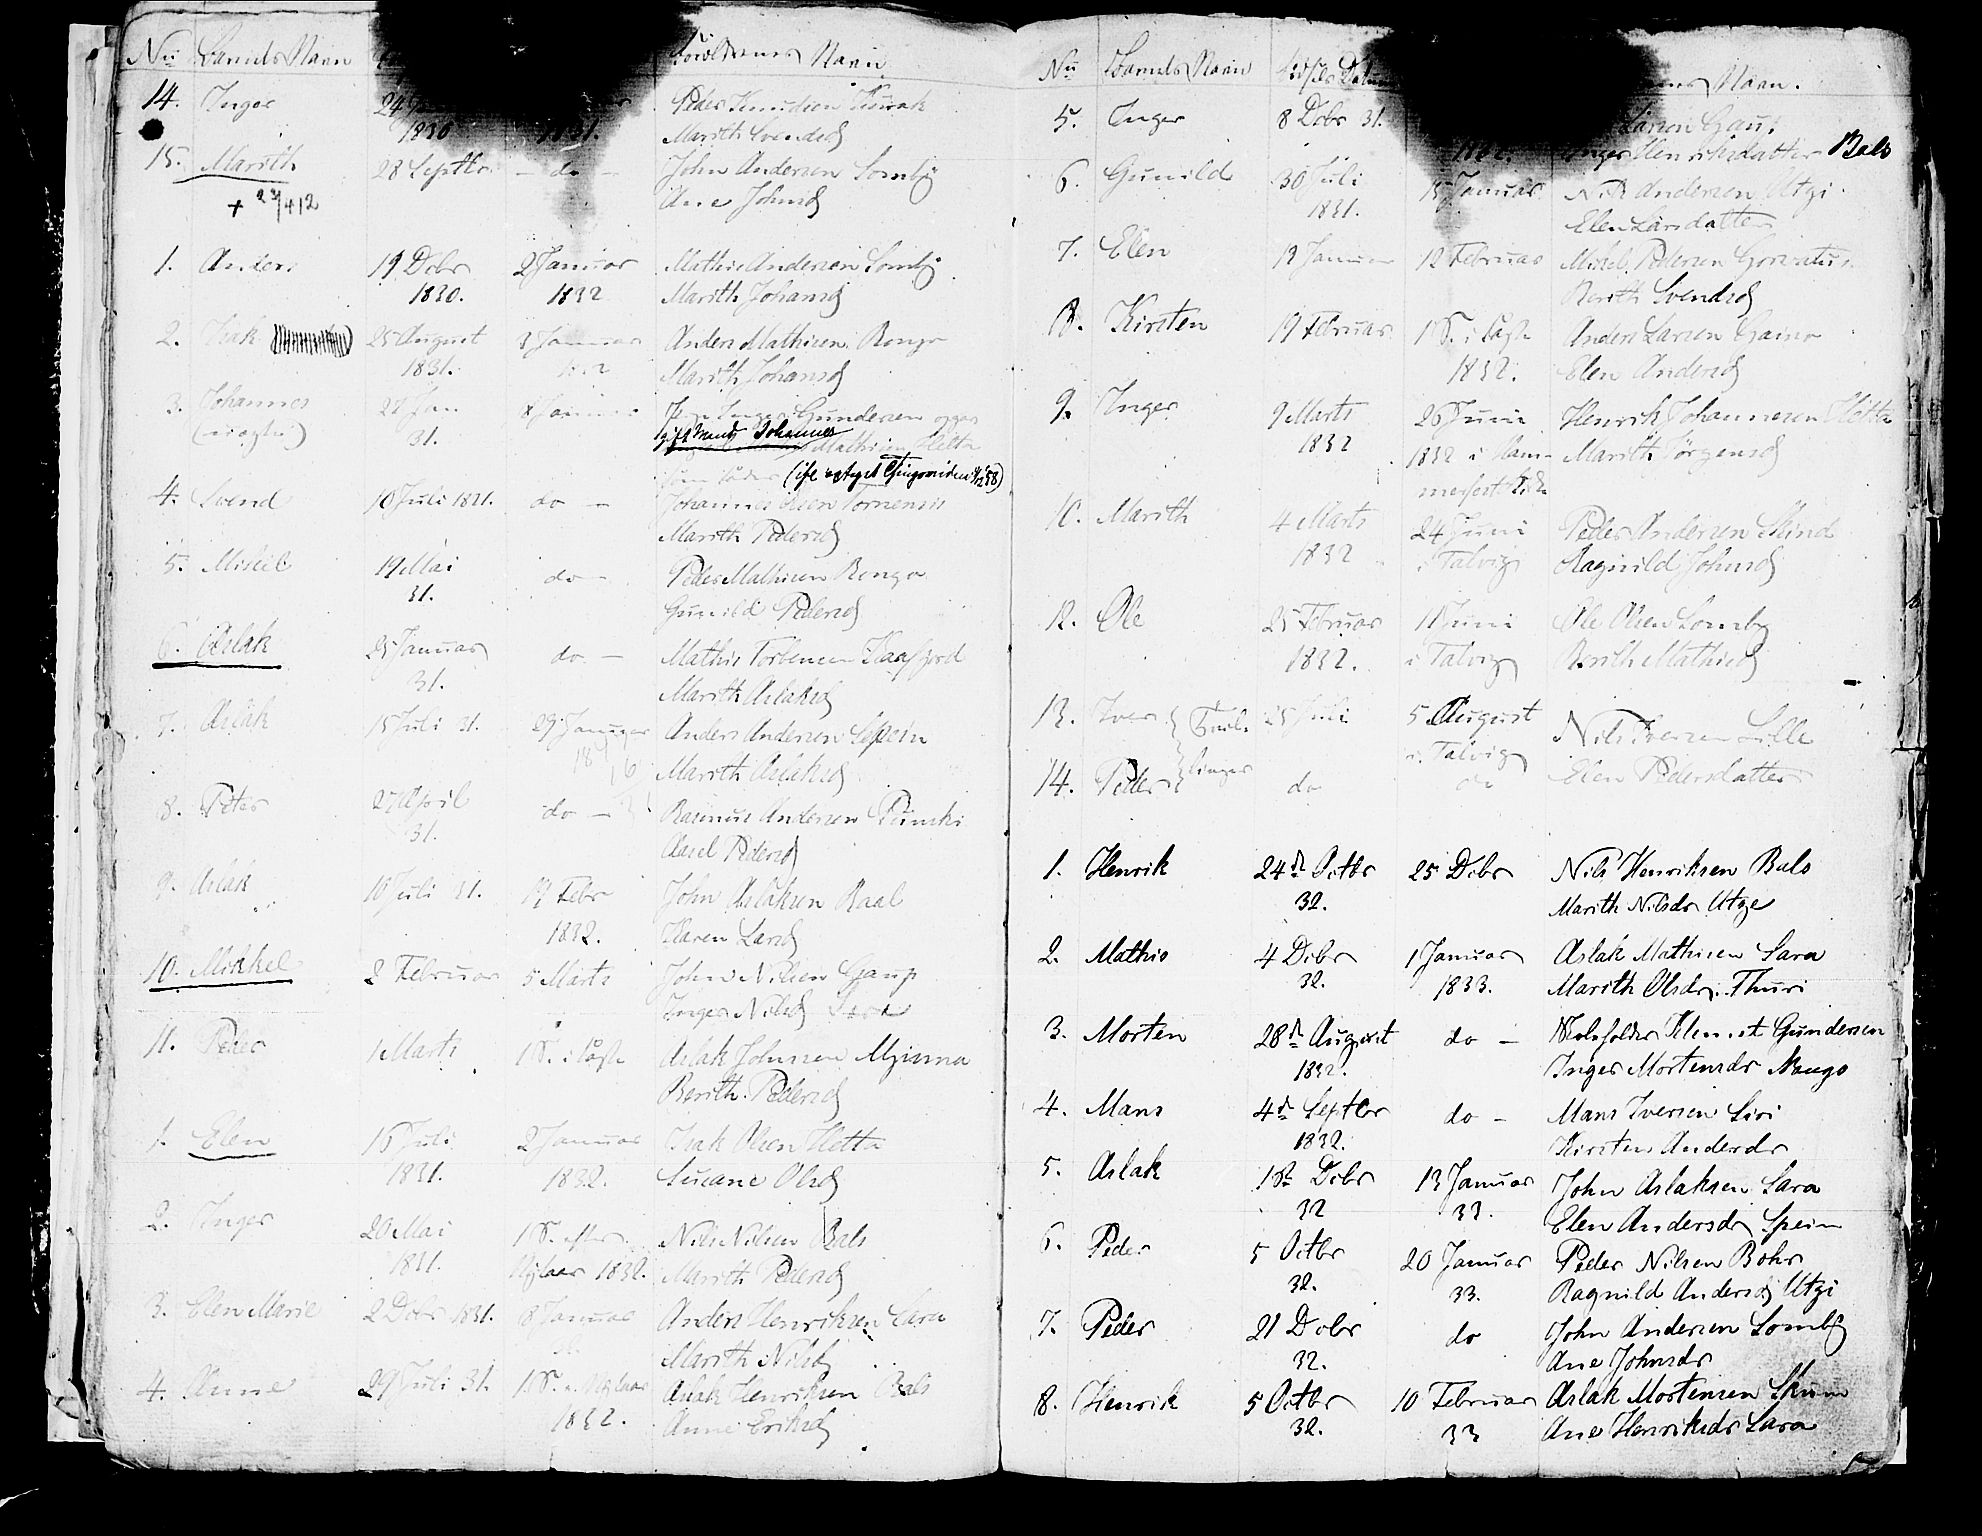 No Barnets Navn Forældrenes Navn
14. Inger 24 1830 1831. Peder Knudsen Kurak
Marith Svendsd
15. Marith 28 Septbr – do – John Andersen Somby
+ 23/4 12 Ane Johnsd
1. Anders 19 Dcbr 2 Januar Mathis Andersen Somby
1830. 1832 Marith Johansd
2. Isak 25 August 8 Januar Anders Mathisen Rongo
1831. Marith Johansd
3. Johannes 28 Jan 8 Januar Inger Gundersen
(uægte) 31. gift Mand Johannes
Mathisen Hetta
som fader
4. Svend 10 Juli 1831. do – Johannes Olsen Tornensis
Marith Pedersd
5. Mikkel 19 Mai do – Peder Mathisen Rongo
31. Gunild Pedersd
6. Aslak 25 Januar do – Mathis Torbensen Kaafjord
31. Marith Aslaksd
7. Aslak 15 Juli 31. 29 Januar Anders Andersen Spein
Marith Aslaksd
8. Peter 27 April do – Rasmus Andersen
31. Aasel Pedersd
9. Aslak 10 Juli 31. 19 Febr John Aslaksen Raal
1832. Karen Larsd
10. Mikkel 2 Februar 5 Marts John Nilsen Gaup
Inger Nilsd Sara
11. Peder 1 Marts 1 S. i Faste Aslak Johnsen
Berith Pedersd
1. Elen 16 Juli 2 Januar Isak Olsen Hetta
1831. 1832. Susane Olsd
2. Inger 20 Mai 1 S. efter Nils Nilsen Bals
1831. Nytaar 1832. Marith Pedersd
3. Elen Marie 2 Dcbr 1831. 8 Januar Anders Henriksen Sara
Marith Nilsd
4. Anne 29 Juli 31. 1 S. e. Nytaar Aslak Henriksen Bals
1832. Anne Eriksd
No Barnets Navn Navn.
5. Inger 8 Dcbr 31. Larsen Gaup
Inger Henriksdatter Bals
6. Gunild 30 Juli 15 Januar Nils Andersen Utzi
1831. Elen Larsdatter
7. Elen 13 Januar 12 Februar Mikkel Pedersen
Berith Svendsd
8. Kirsten 19 Februar 1 S. i Faste Anders Larsen Gaino
1832. Elen Andersd
9. Inger 9 Marts 26 Juni Henrik Johannesen Hetta
1832 1832 i Ham- Marith Jörgensd
merfest
10. Marith 4 Marts 24 Juni Peder Andersen Skind
1832 i Talvig Ragnild Johnsd
12. Ole 25 Februar 11 Juni Ole Olsen Somby
1832. i Talvig Berith Mathisd
13. Iver } Tvil- 25 Juli 5 August Nils Iversen Lille
i Talvig
14. Peder } linger do do Elen Pedersdatter
1. Henrik 24de Octbr 25 Dcbr Nils Henriksen Bals
32. Marith Nilsdr Utze
2. Mathis 4 Dcbr 1 Januar Aslak Mathisen Sara
32. 1833. Marith Olsdr. Thuri
3. Morten 28de August do – Klemet Gundersen
1832. Inger Mortensdr Nango
4. Mans 4de Septbr do – Mans Iversen Siri
1832. Kirsten Andersdr
5. Aslak 18de Dcbr 13 Januar John Aslaksen Sara
32 33. Elen Andersdr Spein
6. Peder 5 Octbr 20 Januar Peder Nilsen Bohr
32. 33. Ragnild Andersd Utzi
7. Peder 21 Dcbr do John Andersen Somby
32. Ane Johnsdr
8. Henrik 5 Octbr 10 Februar Aslak Mortensen Skum
32. 33 Ane Henriksdr Sara